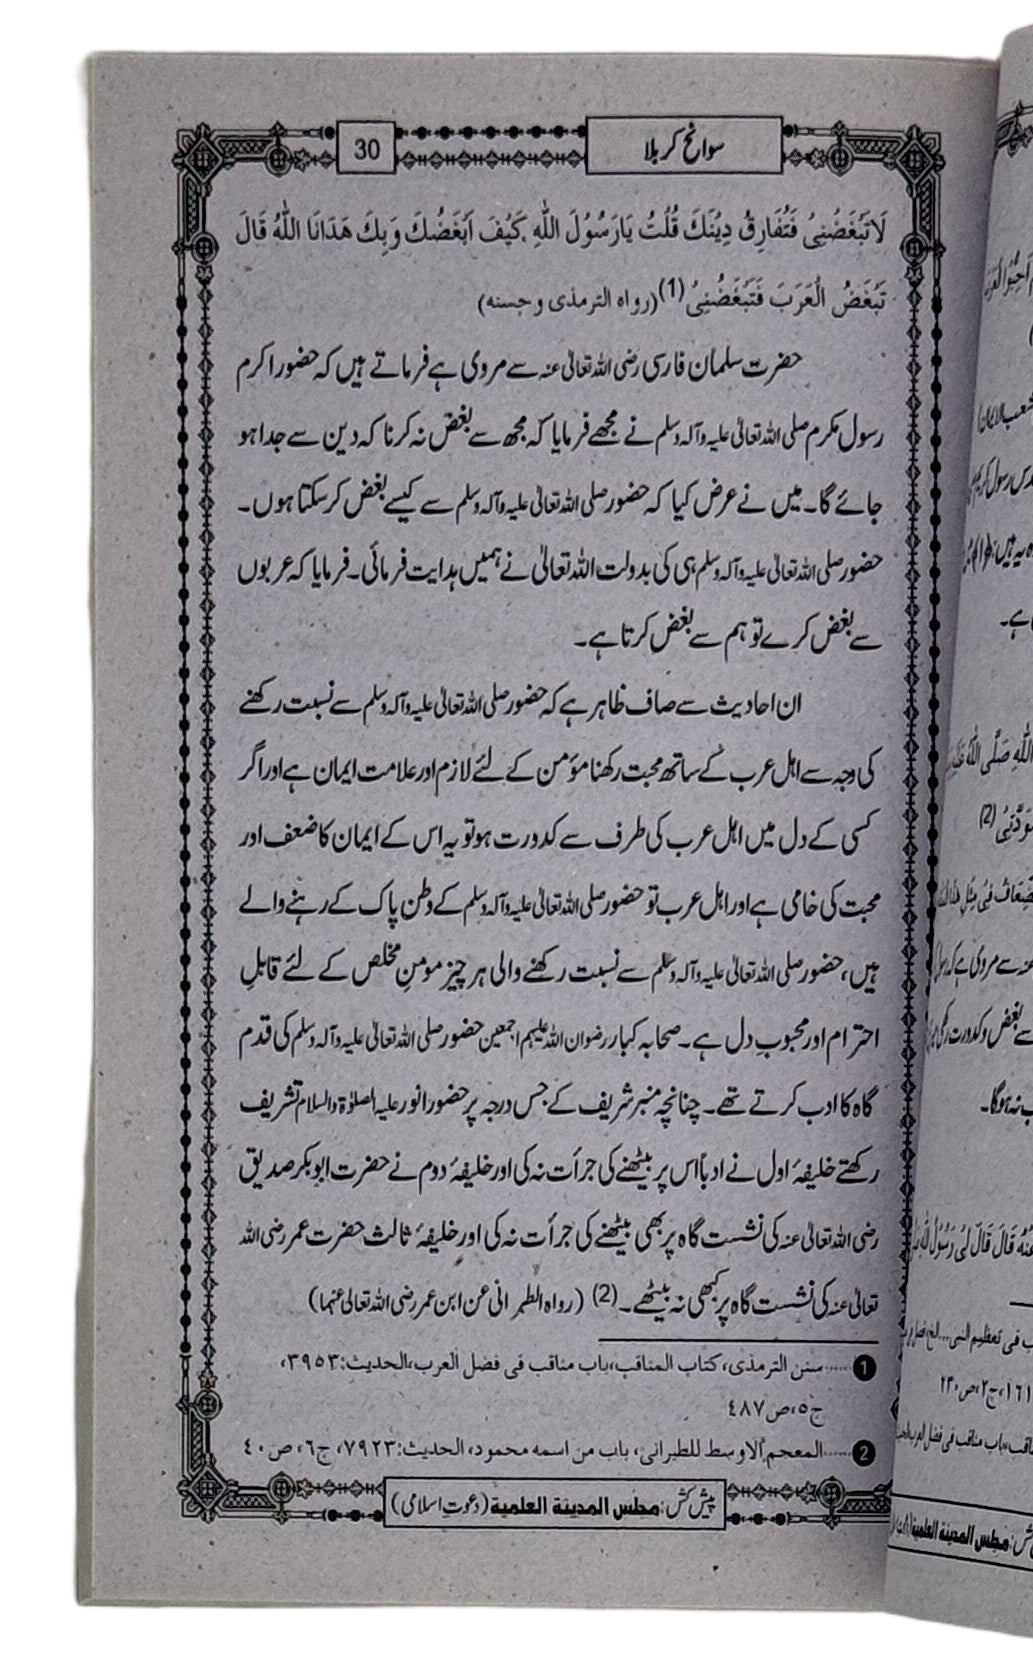 سوانح کربلا
30
لَاتَبْغَضْنِیْ فَتُفَارِقْ دِیْنَكَ قُلْتُ یَارَسُوْلَ اللّٰهِ کَیْفَ اَبْغَضُكَ وَبِكَ هَدَانَا اللّٰهُ قَالَ
تَبْغَضُ الْعَرَبَ فَتَبْغَضُنِیْ (1) (رواه الترمذی وحسنه)
حضرت سلمان فارسی رضی اللہ تعالیٰ عنہ سے مروی ہے فرماتے ہیں کہ حضور اکرم
رسول مکرم صلی اللہ تعالیٰ علیہ وآلہ وسلم نے مجھے فرمایا کہ مجھ سے بغض نہ کرنا کہ دین سے جدا ہو
جائے گا۔ میں نے عرض کیا کہ حضور صلی اللہ تعالیٰ علیہ وآلہ وسلم سے کیسے بغض کر سکتا ہوں۔
حضور صلی اللہ تعالیٰ علیہ وآلہ وسلم ہی کی بدولت اللہ تعالیٰ نے ہمیں ہدایت فرمائی۔ فرمایا کہ عربوں
سے بغض کرے تو ہم سے بغض کرتا ہے۔
ان احادیث سے صاف ظاہر ہے کہ حضور صلی اللہ تعالیٰ علیہ وآلہ وسلم سے نسبت رکھنے
کی وجہ سے اہل عرب کے ساتھ محبت رکھنا مؤمن کے لئے لازم اور علامت ایمان ہے اور اگر
کسی کے دل میں اہل عرب کی طرف سے کدورت ہو تو یہ اس کے ایمان کا ضعف اور
محبت کی خامی ہے اور اہل عرب تو حضور صلی اللہ تعالیٰ علیہ وآلہ وسلم کے وطن پاک کے رہنے والے
ہیں، حضور صلی اللہ تعالیٰ علیہ وآلہ وسلم سے نسبت رکھنے والی ہر چیز مومنِ مخلص کے لئے قابلِ
احترام اور محبوبِ دل ہے۔ صحابہ کبار رضوان اللہ علیہم اجمعین حضور صلی اللہ تعالیٰ علیہ وآلہ وسلم کی قدم
گاہ کا ادب کرتے تھے۔ چنانچہ منبر شریف کے جس درجہ پر حضور انور علیہ الصلوٰۃ والسلام تشریف
رکھتے خلیفۂ اول نے ادباً اس پر بیٹھنے کی جرأت نہ کی اور خلیفۂ دوم نے حضرت ابوبکر صدیق
رضی اللہ تعالیٰ عنہ کی نشست گاہ پر بھی بیٹھنے کی جرأت نہ کی اور خلیفۂ ثالث حضرت عمر رضی اللہ
تعالیٰ عنہ کی نشست گاہ پر کبھی نہ بیٹھے۔ (2) (رواہ الطبرانی عن ابن عمر رضی اللہ تعالیٰ عنہما)
1 ......سنن الترمذی، کتاب المناقب، باب مناقب فی فضل العرب، الحدیث: ۳۹۵۳،
ج۵، ص ۴۸۷
2 ......المعجم الاوسط للطبرانی، باب من اسمه محمود، الحدیث: ۷۹۲۳، ج۶، ص ۴۰
پیش کش: مجلس المدینة العلمیة (دعوتِ اسلامی)